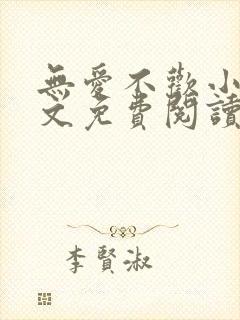 無愛不歡小
文免費閱讀
李賢淑